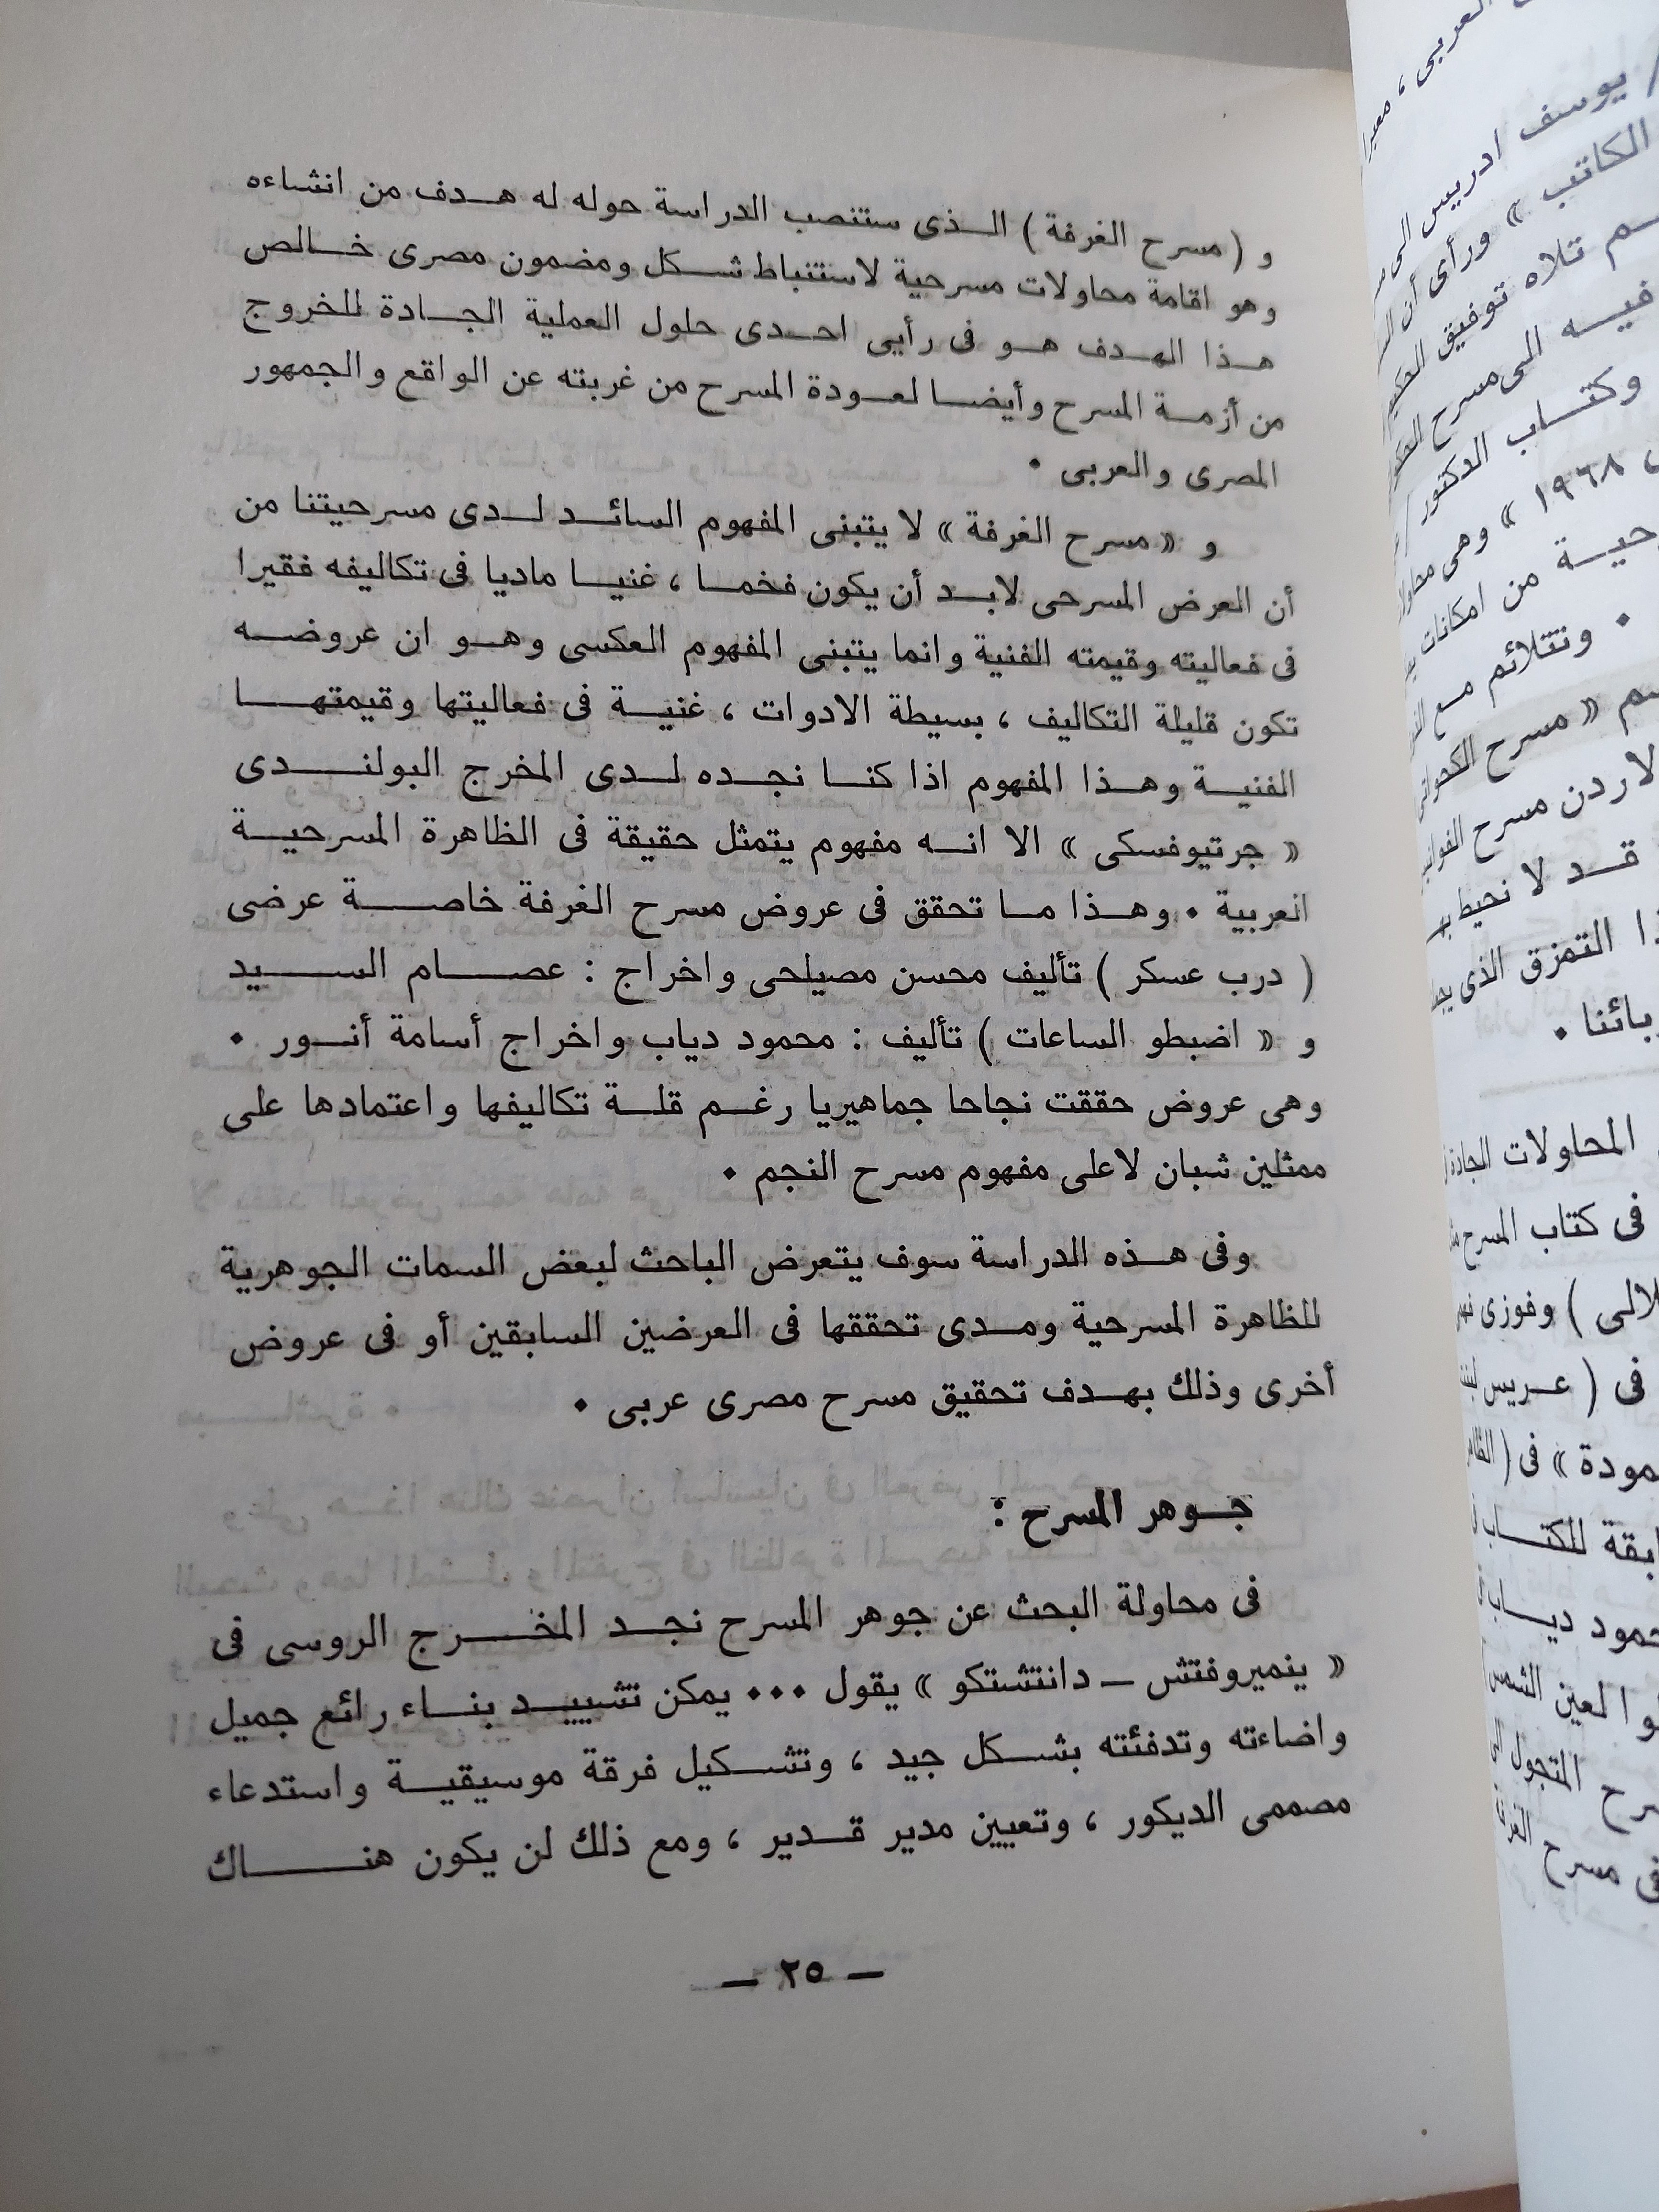 و ( مسرح الغرفة ) الذى ستنصب الدراسة حوله له هدف من انشاءه
وهو اقامة محاولات مسرحية لاستنباط شكل ومضمون مصرى خالص
هذا الهدف هو فى رأيى احدى حلول العملية الجادة للخروج
من أزمة المسرح وأيضا لعودة المسرح من غربته عن الواقع والجمهور
المصرى والعربى •
و « مسرح الغرفة » لا يتبنى المفهوم السائد لدى مسرحيتنا من
أن العرض المسرحى لابد أن يكون فخما ، غنيا ماديا فى تكاليفه فقيرا
فى فعاليته وقيمته الفنية وانما يتبنى المفهوم العكسى وهو ان عروضه
تكون قليلة التكاليف ، بسيطة الادوات ، غنية فى فعاليتها وقيمتها
الفنية وهذا المفهوم اذا كنا نجده لدى المخرج البولندى
« جرتيوفسكى » الا انه مفهوم يتمثل حقيقة فى الظاهرة المسرحية
العربية • وهذا ما تحقق فى عروض مسرح الغرفة خاصة عرضى
( درب عسكر ) تأليف محسن مصيلحى واخراج : عصام السيد
و « اضبطو الساعات ) تأليف : محمود دياب واخراج أسامة أنور •
وهى عروض حققت نجاحا جماهيريا رغم قلة تكاليفها واعتمادها على
ممثلين شبان لاعلى مفهوم مسرح النجم •
وفى هذه الدراسة سوف يتعرض الباحث لبعض السمات الجوهرية
للظاهرة المسرحية ومدى تحققها فى العرضين السابقين أو فى عروض
أخرى وذلك بهدف تحقيق مسرح مصرى عربى •
جوهر المسرح :
فى محاولة البحث عن جوهر المسرح نجد المخرج الروسى فى
« ينميروفتش — دانتشتكو » يقول ••• يمكن تشييد بناء رائع جميل
واضاءته وتدفئته بشكل جيد ، وتشكيل فرقة موسيقية واستدعاء
مصممى الديكور ، وتعيين مدير قدير ، ومع ذلك لن يكون هناك
— ٢٥ —
العربى ،
/ يوسف ادريس الى
الكاتب » ورأى أن
تلاه توفيق الحكيم
فيه الى مسرح
وكتاب الدكتور /
١٩٦٨ » وهى
من امكانات
• وتتلائم مع
« مسرح
مسرح
قد لا نحيط
التمزق الذى
•
المحاولات الجادة
فى كتاب المسرح
) وفوزى
فى ( عريس
» فى (
للكتاب
دياب
لمعين
المتجول
مسرح